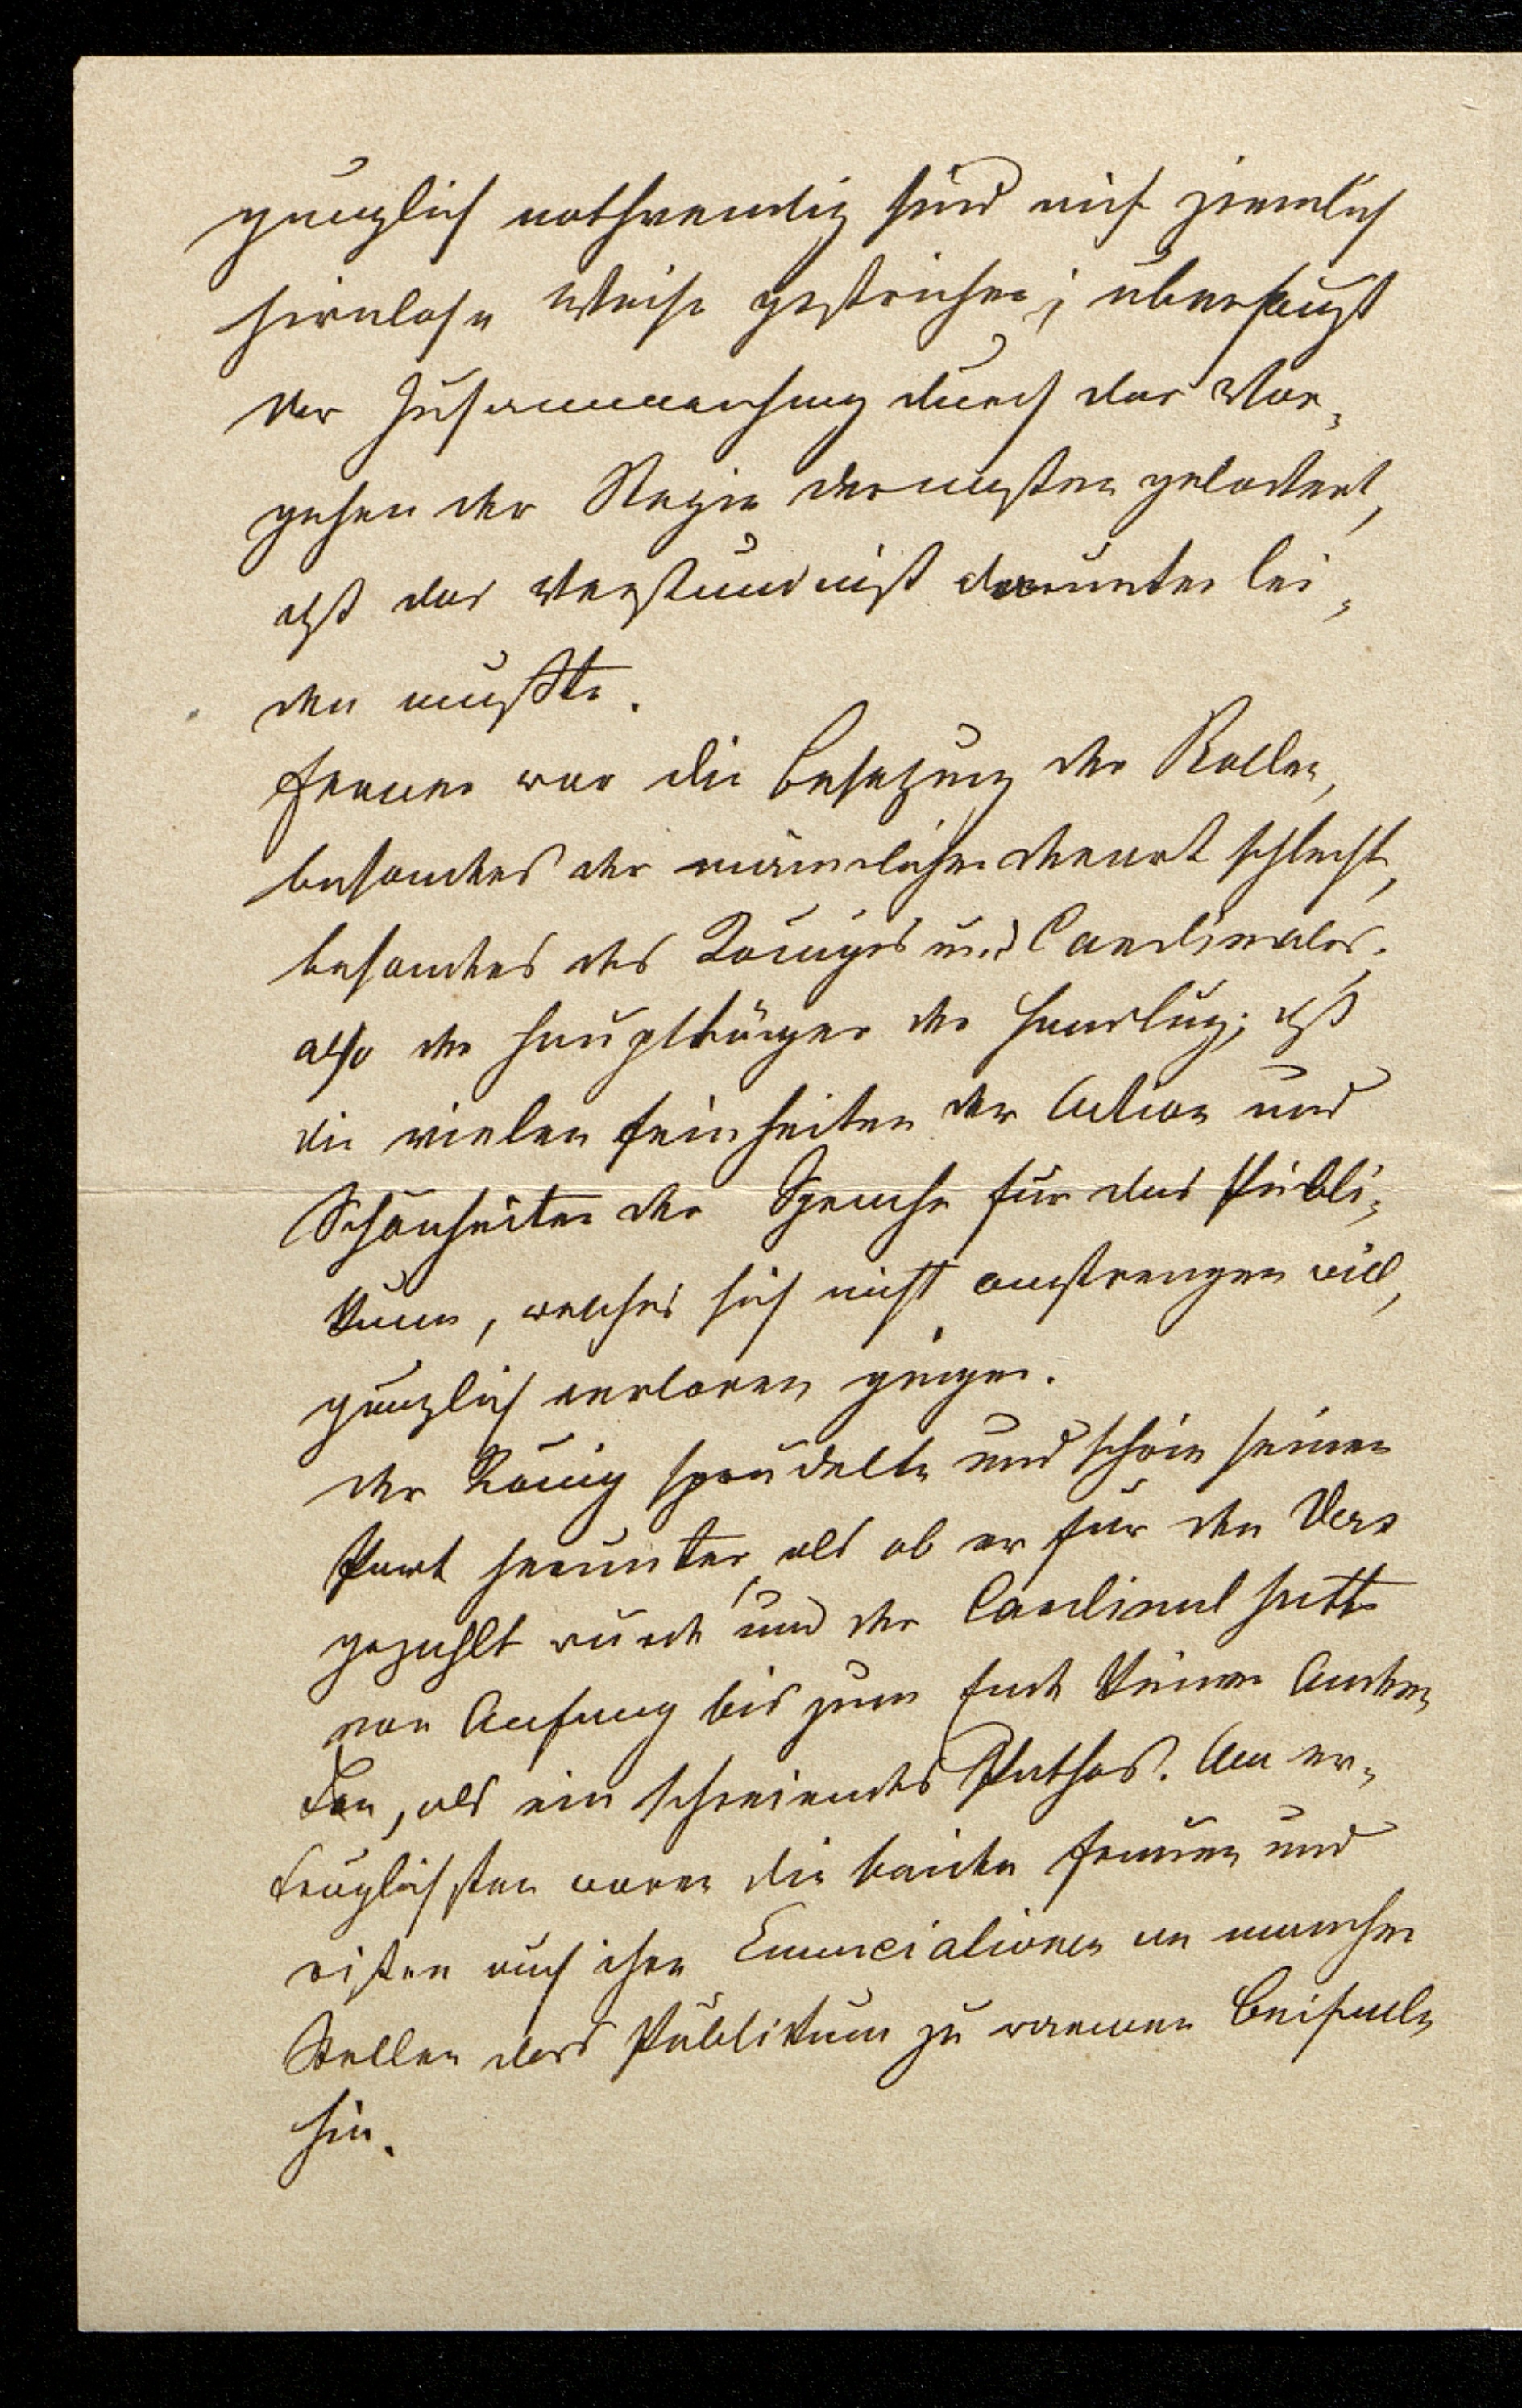 gänzlich nothwendig sind auf ziemlich
hirnlose Weise gestrichen; überhaupt
der Zusammenhang durch das Vor-
gehen der Regie dermaßen gelockert,
daß das Verständniß darunter lei-
den mußte.
Ferner war die Besetzung der Rollen,
besonders der männlichen derart schlecht,
besonders des Königs und Cardinales,
also der Hauptträger der Handlung; daß
die vielen Feinheiten der Action und
Schönheiten der Sprache für das Publi-
kum, welches sich nicht anstrengen will,
gänzlich verloren gingen.
Der König sprudelte und schrie seinen
Part herunter, als ob er für den Vers
gezahlt würde und der Cardinal hatte
von Anfang bis zum Ende keinen andern
Ton, als ein schreiendes Pathos. Am er-
träglichsten waren die beiden Frauen und
rissen auch ihre Enunciationen an manchen
Stellen das Publikum zu warmem Beifalle
hin.